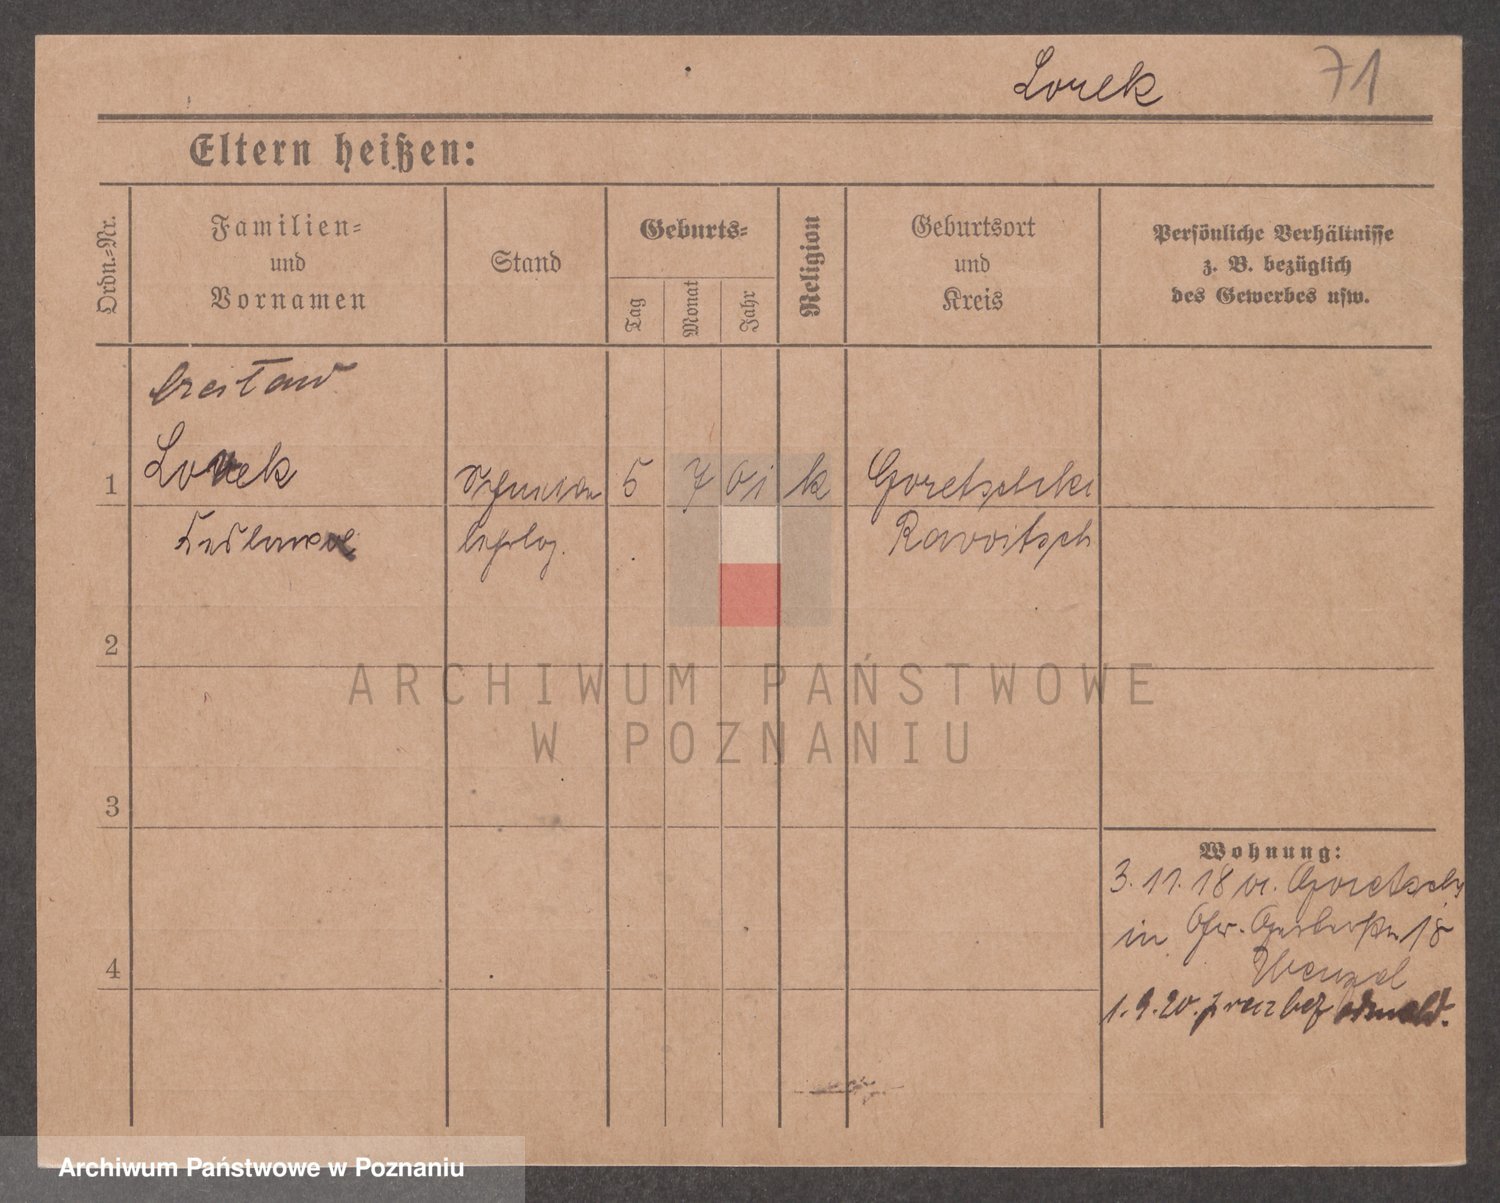 Lorek 71
Eltern heißen:
Ordn.-Nr.
Familien-
und
Vornamen
Stand
Geburts-
Tag
Monat
Jahr
Religion
Geburtsort
und
Kreis
Persönliche Verhältnisse
z. B. bezüglich
des Gewerbes usw.
1 Lorek 5 7 01 k Goretschki
Rawitsch
2
3
4
Wohnung:
3. 11. 18 v.
in 18
Wenzel
1. 9. 20.
ARCHIWUM PAŃSTWOWE
W POZNANIU
Archiwum Państwowe w Poznaniu